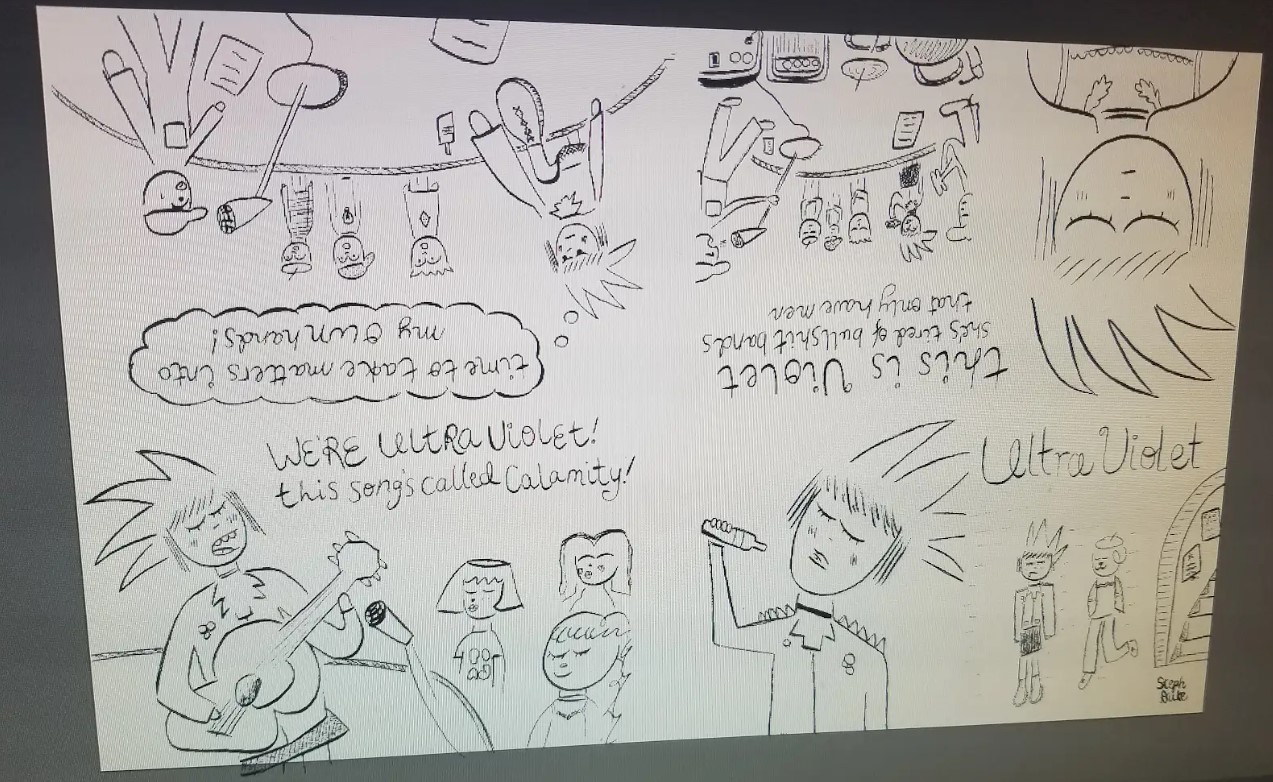 time to take matters into
my own hands!
this is Violet
she's tired of bullshit bands
that only have men
WE'RE UltRa Violet!
this song's called Calamity!
Ultra Violet
Steph